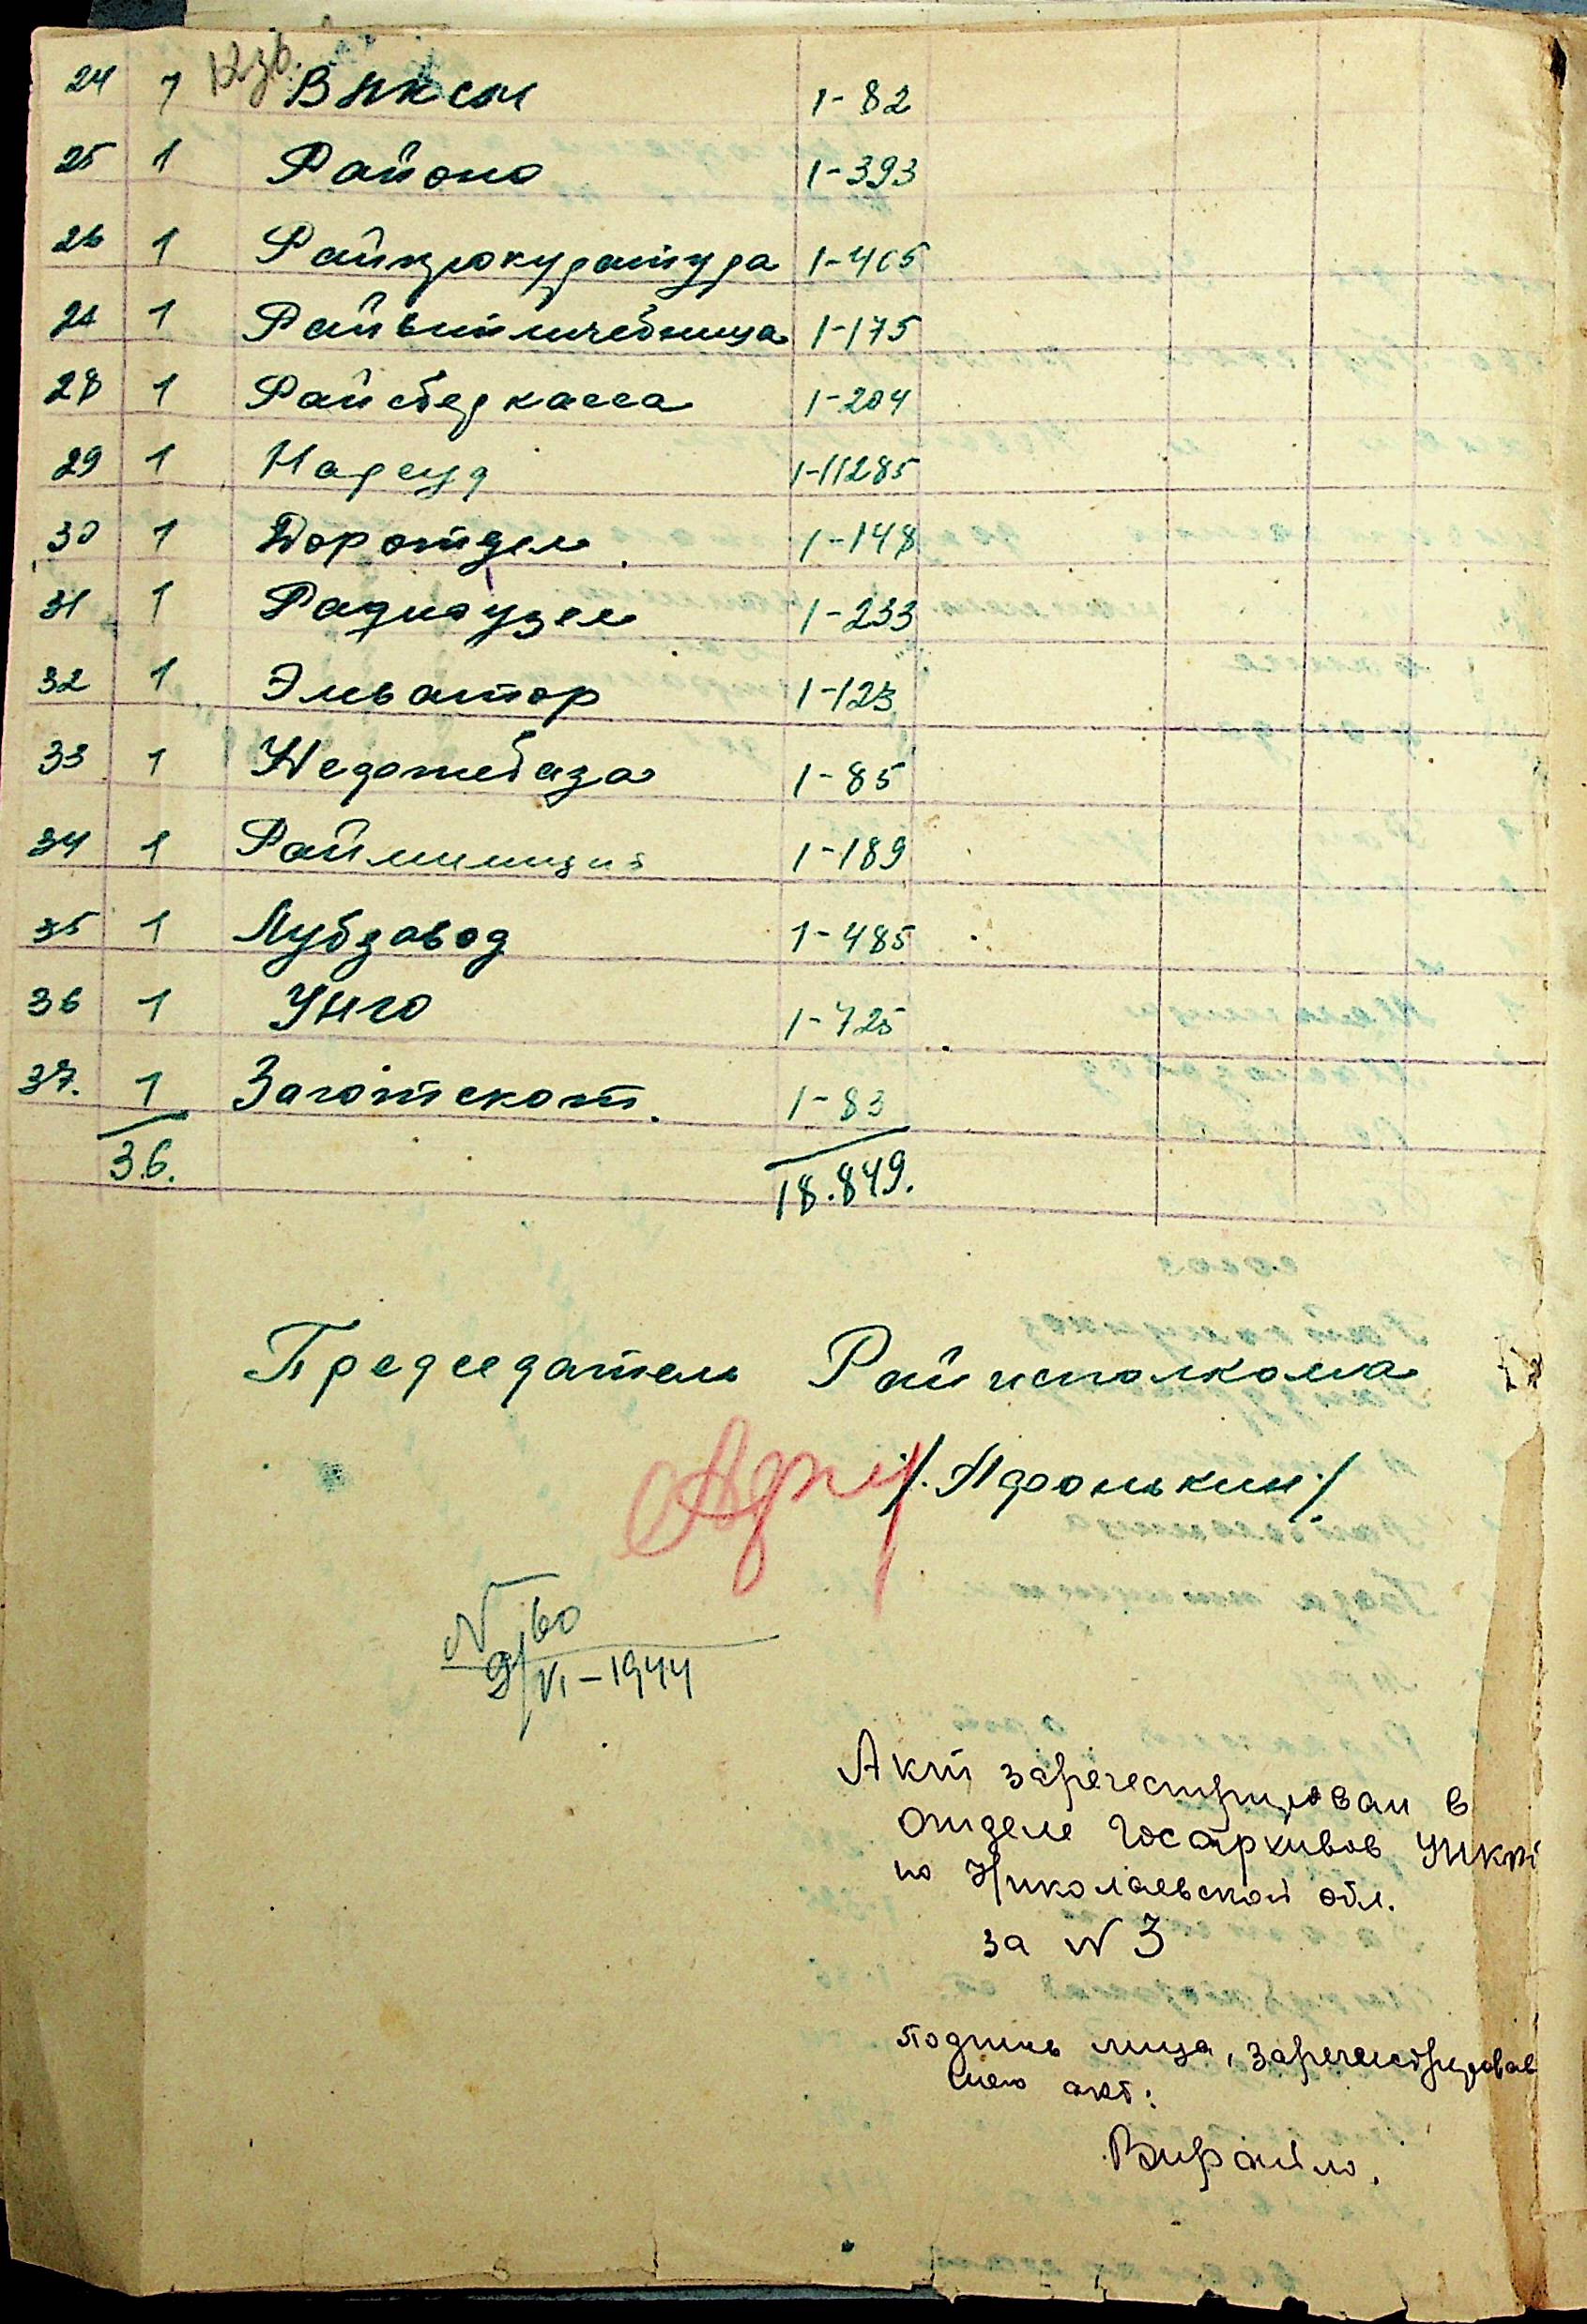 24 1 Выксы 1-82
25 1 Районо 1-393
26 1 Райпрокуратура 1-405
27 1 Райветличебница 1-175
28 1 Райсберкасса 1-204
29 1 Нарсуд 1-11285
30 1 Доротдел. 1-148
31 1 Радиоузел 1-233
32 1 Элеватор 1-123
33 1 1-85
34 1 Раймилиция 1-189
35 1 Лубзавод 1-485
36 1 УНГО 1-725
37. 1 Заготскот. 1-83
36. 18.849.
Председатель Райисполкома
/.Афонькин./
N 60
9/VI-1944
Акт зарегестрирован в
отделе Госархивов УНКВД
по Николаевской обл.
за N 3
подпись лица, зарегестрировав
шего акт: